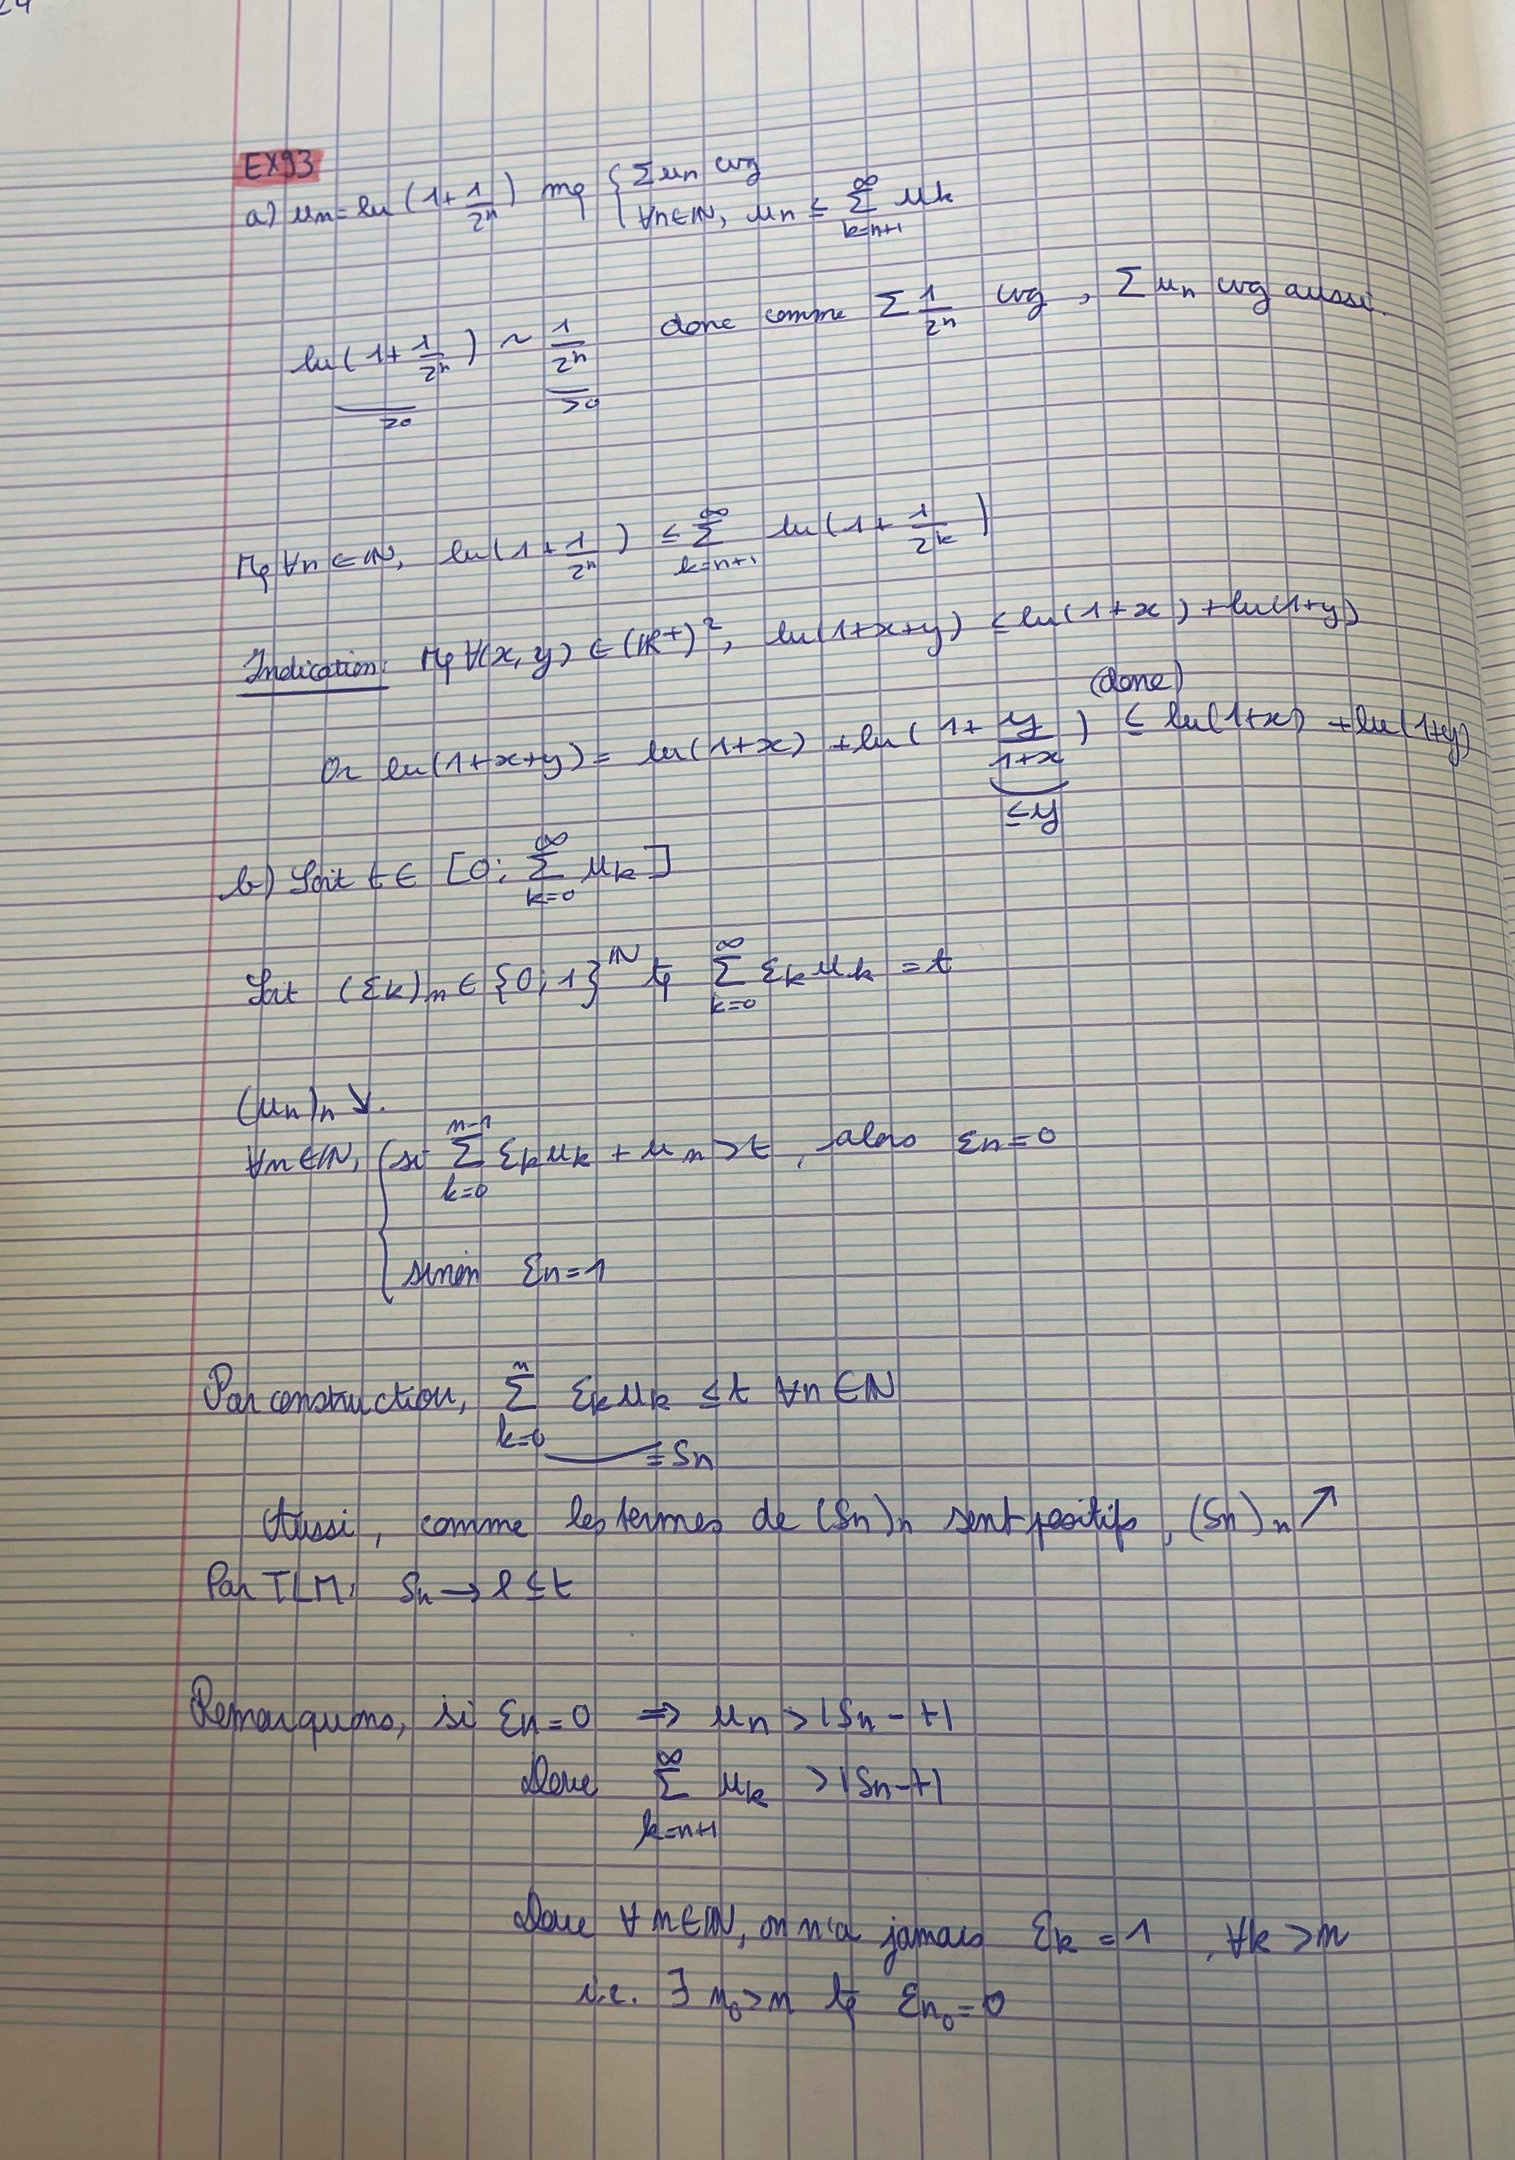 24
EX93
a) un = ln(1+1/2^n) mq { Σun cvg
∀n∈ℕ, un ≤ Σ_{k=n+1}^{∞} uk
ln(1+1/2^n) ~ 1/2^n donc comme Σ 1/2^n cvg, Σun cvg aussi.
>0 >0
Mq ∀n∈ℕ, ln(1+1/2^n) ≤ Σ_{k=n+1}^{∞} ln(1+1/2^k)
Indication: Mq ∀(x,y) ∈ (ℝ+)², ln(1+x+y) ≤ ln(1+x)+ln(1+y)
(donc)
Or ln(1+x+y) = ln(1+x) + ln(1+ y/(1+x)) ≤ ln(1+x) + ln(1+y)
≤y
b) Soit t ∈ [0; Σ_{k=0}^{∞} uk]
Soit (εk)n ∈ {0;1}^ℕ tq Σ_{k=0}^{∞} εk uk = t
(un)n ↘.
∀n∈ℕ, { si Σ_{k=0}^{n-1} εk uk + un > t, alors εn=0
sinon εn=1
Par construction, Σ_{k=0}^{n} εk uk ≤ t ∀n∈ℕ
= Sn
Aussi, comme les termes de (Sn)n sont positifs, (Sn)n ↗
Par TLM: Sn → l ≤ t
Remarquons, si εn=0 ⇒ un > |Sn - t|
Donc Σ_{k=n+1}^{∞} uk > |Sn-t|
Donc ∀n∈ℕ, on n'a jamais εk = 1, ∀k>n
i.e. ∃ n0>n tq εn0=0